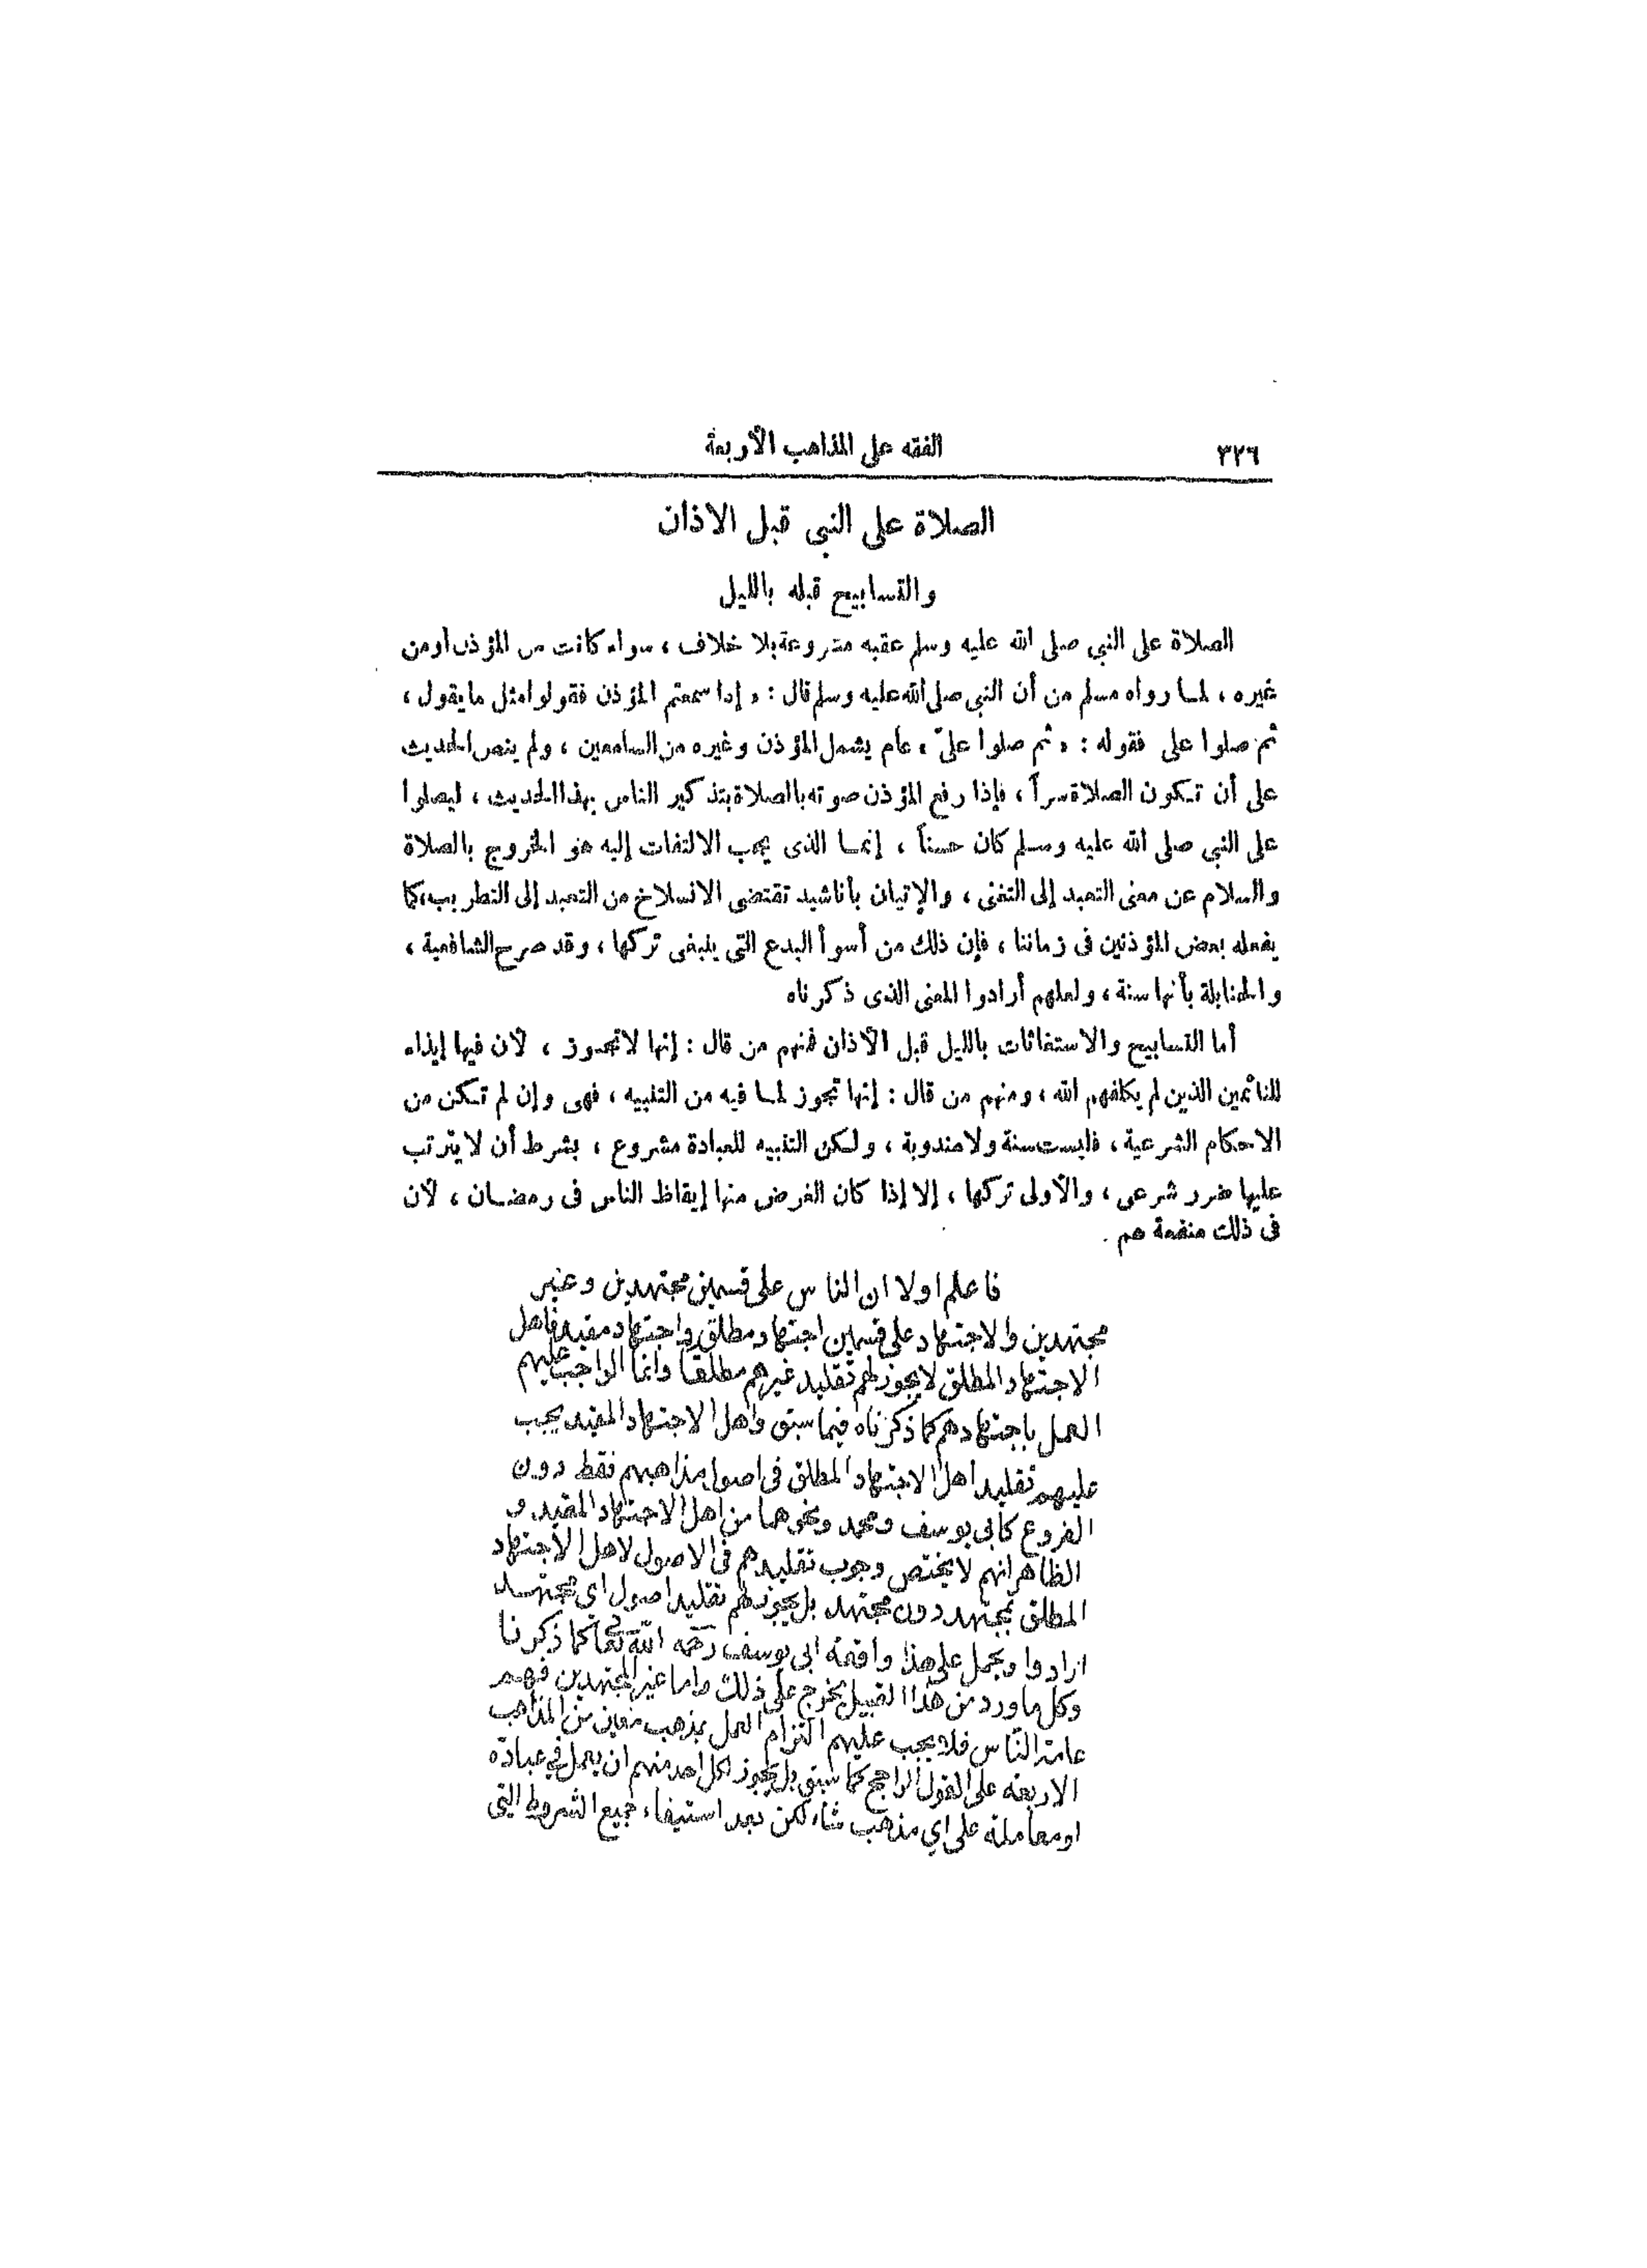 ٣٢٦ الفقه على المذاهب الأربعة
الصلاة على النبى قبل الاذان
والتسابيح قبله بالليل
الصلاة على النبي صلى الله عليه وسلم عقبه مشروعة بلا خلاف ، سواء كانت من المؤذن أو من
غيره ، لما رواه مسلم من أن النبي صلى الله عليه وسلم قال : « إذا سمعتم المؤذن فقولوا مثل ما يقول ،
ثم صلوا على فقوله : « ثم صلوا علىّ ، عام يشمل المؤذن وغيره من السامعين ، ولم ينص الحديث
على أن تكون الصلاة سراً ، فإذا رفع المؤذن صوته بالصلاة بتذكير الناس بهذا الحديث ، ليصلوا
على النبي صلى الله عليه وسلم كان حسناً ، إنما الذى يجب الالتفات إليه هو الخروج بالصلاة
والسلام عن معنى التعبد إلى التغنى ، والإتيان بأناشيد تقتضى الانسلاخ من التعبد إلى التطريب، كما
يفعله بعض المؤذنين فى زماننا ، فإن ذلك من أسوأ البدع التى ينبغى تركها ، وقد صرح الشافعية ،
والحنابلة بأنها سنة ، ولعلهم أرادوا المعنى الذى ذكرناه
أما التسابيح والاستغاثات بالليل قبل الأذان فمنهم من قال : إنها لا تجوز ، لأن فيها إيذاء
للنائمين الذين لم يكلفهم الله ، ومنهم من قال : إنها تجوز لما فيه من التنبيه ، فهى وإن لم تكن من
الاحكام الشرعية ، فليست سنة ولا مندوبة ، ولكن التنبيه للعبادة مشروع ، بشرط أن لا يترتب
عليها ضرر شرعى ، والأولى تركها ، إلا إذا كان الغرض منها إيقاظ الناس فى رمضان ، لأن
فى ذلك منفعة هم .
فاعلم اولا ان الناس على قسمين مجتهدين وغير
مجتهدين والاجتهاد على قسمين اجتهاد مطلق واجتهاد مقيد فاهل
الاجتهاد المطلق لا يجوز لهم تقليد غيرهم مطلقا وانما الواجب عليهم
العمل باجتهادهم كما ذكرناه فيما سبق واهل الاجتهاد المقيد يجب
عليهم تقليد اهل الاجتهاد المطلق فى اصول مذاهبهم فقط دون
الفروع كابى يوسف ومحمد ونحوهما من اهل الاجتهاد المقيد و
الظاهر انهم لا يختص وجوب تقليدهم فى الاصول لاهل الاجتهاد
المطلق بمجتهد دون مجتهد بل يجوز لهم تقليد اصول اى مجتهد
ارادوا ويحمل على هذا واقعة ابى يوسف رحمه الله تعالى كما ذكرنا
وكل ما ورد من هذا القبيل يخرج على ذلك واما غير المجتهدين فهم
عامة الناس فلا يجب عليهم التزام العمل بمذهب معين من المذاهب
الاربعة على القول الراجح كما سبق بل يجوز لكل احد منهم ان يعمل في عبادة
او معاملة على اي مذهب شاء لكن بعد استيفاء جميع الشروط التي